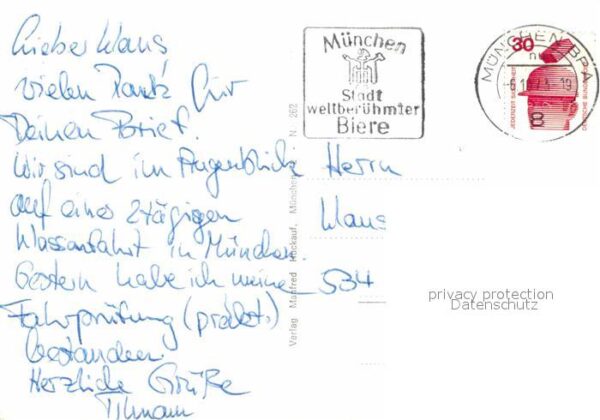 Lieber Klaus
vielen Dank für
Deinen Brief.
Wir sind im Augenblick
auf einer 2tägigen
Klassenfahrt in München.
Gestern habe ich meine
Fahrprüfung (prakt.)
bestanden.
Herzliche Grüße
Tilmann
Verlag Manfred Hockauf, München N. 262
München
Stadt
weltberühmter
Biere
MÜNCHEN BPA
30
JEDERZEIT SICHERHEIT
DEUTSCHE BUNDESPOST
8
Herrn
Klaus
534
privacy protection
Datenschutz